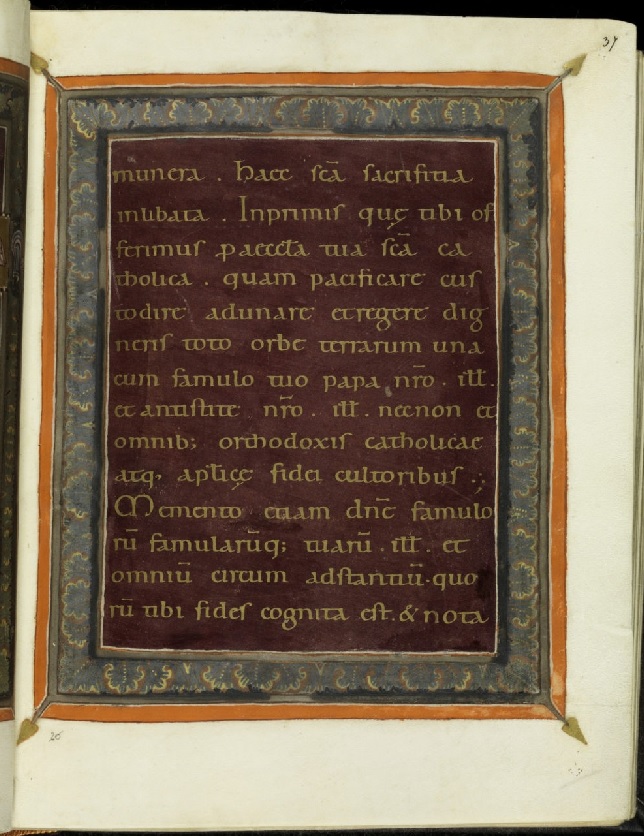 37
munera . haec scā sacrifitia
inlibata . Inprimis quę tibi of
ferimus p aeccl̄a tua scā ca
tholica . quam pacificare cus
todire adunare et regere dig
neris toto orbe terrarum una
cum famulo tuo papa nr̄o . ill̄ .
et antistite nr̄o . ill̄ . necnon et
omnib; orthodoxis catholicae
atq, apl̄icę fidei cultoribus .,
Memento etiam dn̄e famulo
rū famularūq; tuarū . ill̄ . et
omniū circum adstantiū . quo
rū tibi fides cognita est . & nota
26